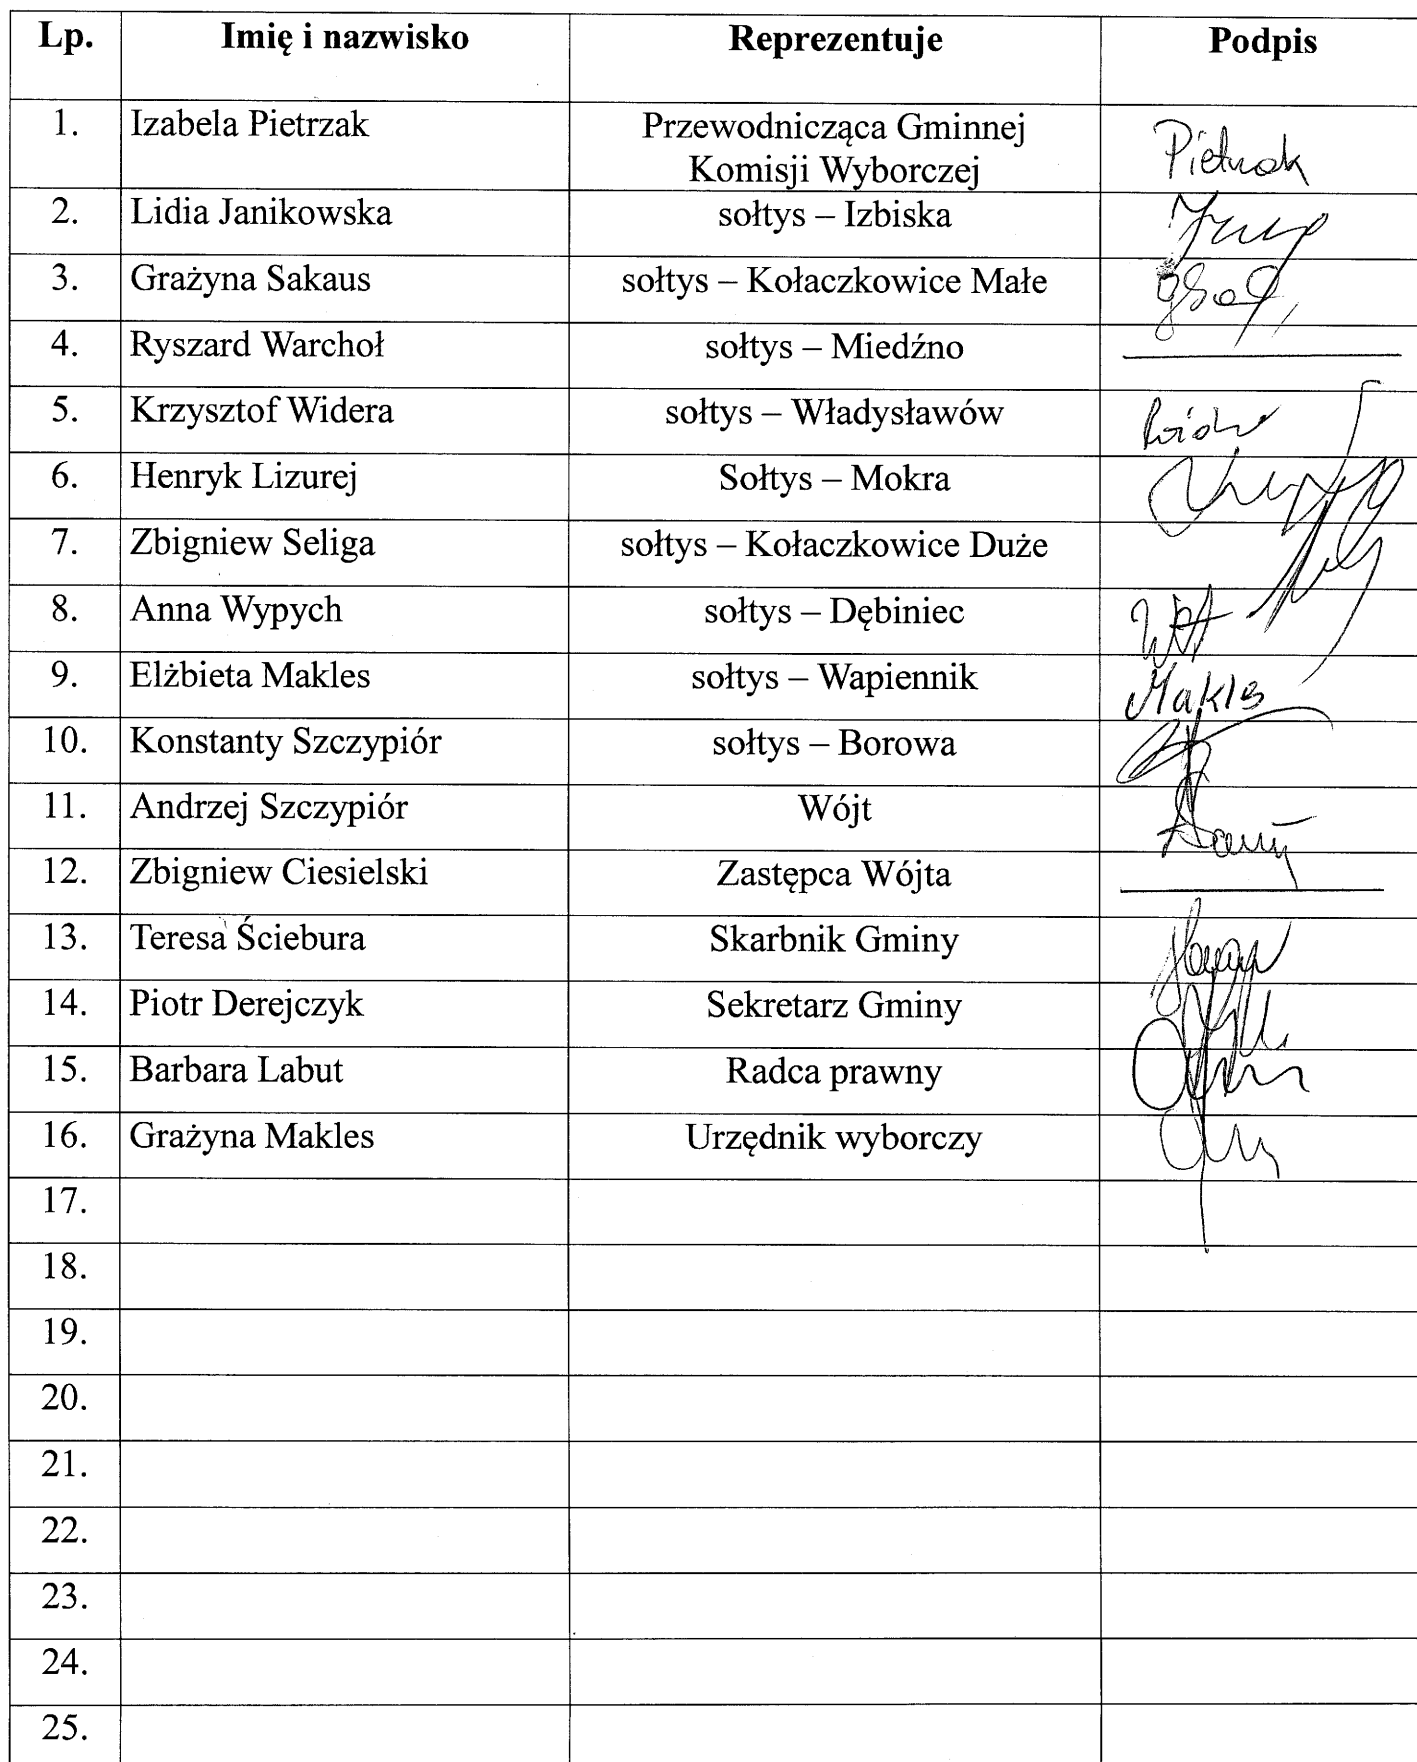 Lp. Imię i nazwisko Reprezentuje Podpis
1. Izabela Pietrzak Przewodnicząca Gminnej
Komisji Wyborczej Pietrzak
2. Lidia Janikowska sołtys – Izbiska
3. Grażyna Sakaus sołtys – Kołaczkowice Małe
4. Ryszard Warchoł sołtys – Miedźno
5. Krzysztof Widera sołtys – Władysławów
6. Henryk Lizurej Sołtys – Mokra
7. Zbigniew Seliga sołtys – Kołaczkowice Duże
8. Anna Wypych sołtys – Dębiniec
9. Elżbieta Makles sołtys – Wapiennik Makles
10. Konstanty Szczypiór sołtys – Borowa
11. Andrzej Szczypiór Wójt
12. Zbigniew Ciesielski Zastępca Wójta
13. Teresa Ściebura Skarbnik Gminy
14. Piotr Derejczyk Sekretarz Gminy
15. Barbara Labut Radca prawny
16. Grażyna Makles Urzędnik wyborczy
17.
18.
19.
20.
21.
22.
23.
24.
25.